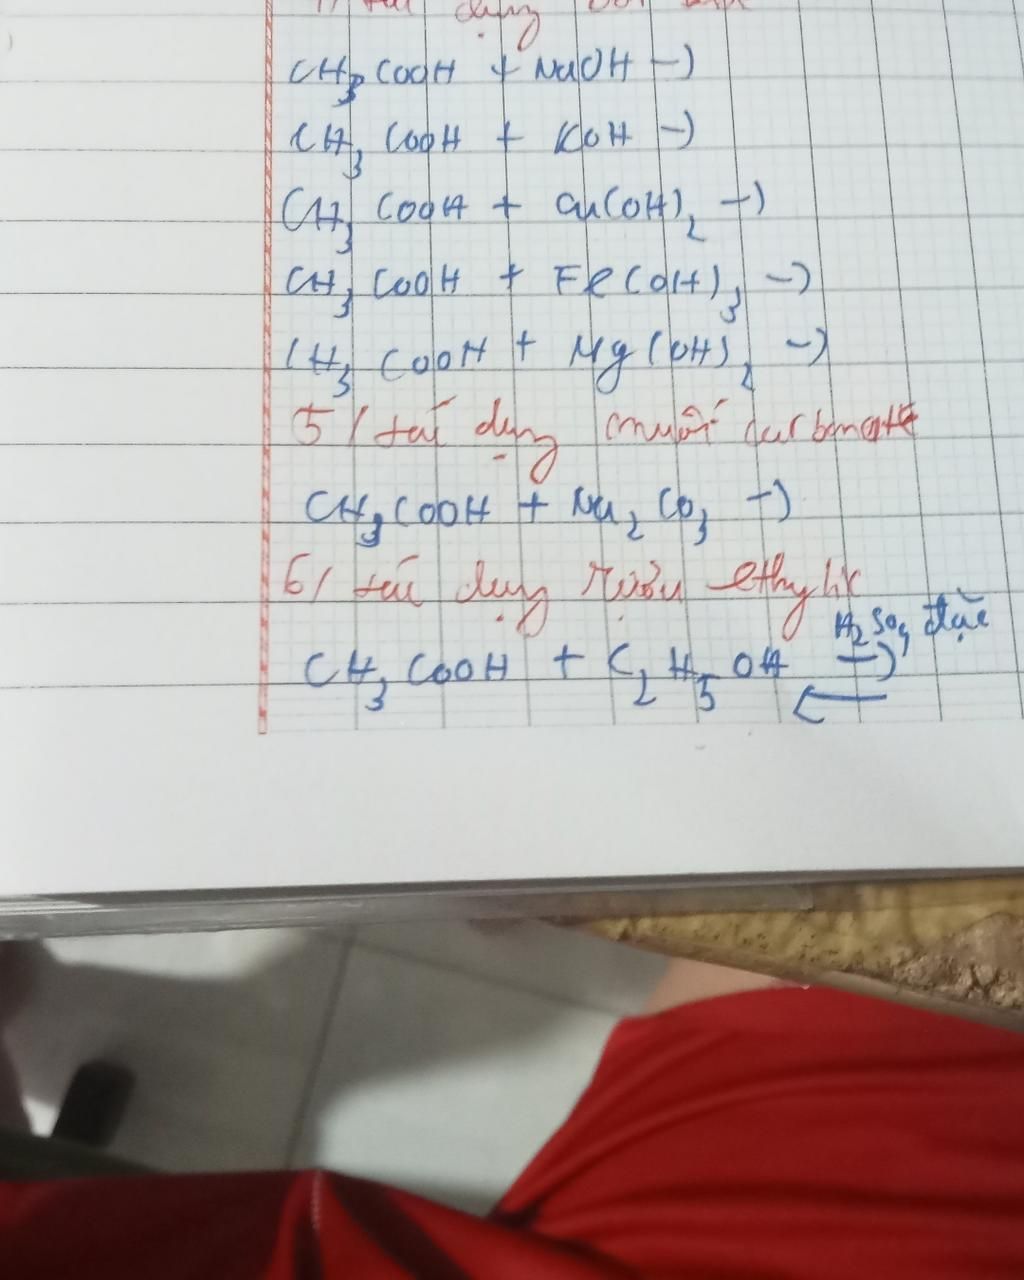 tác dụng
CH3COOH + NaOH →
CH3COOH + KOH →
CH3COOH + Cu(OH)2 →
CH3COOH + Fe(OH)3 →
CH3COOH + Mg(OH)2 →
5/ tác dụng muối carbonate
CH3COOH + Na2CO3 →
6/ tác dụng rượu ethylic
H2SO4 đặc
CH3COOH + C2H5OH ⇌